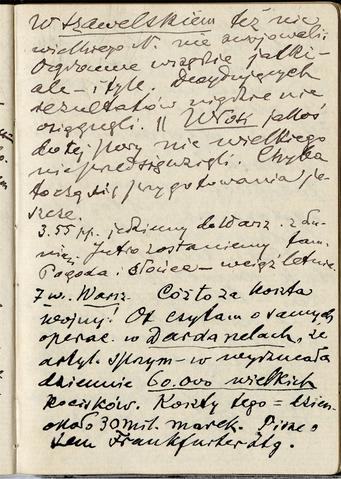 W szawelskiem też nic
wielkiego N. nie zwojowali.
Ogromne wszędzie jatki -
ale - i tyle. Decydujących
rezultatów nigdzie nie
osiągnęli. || Włosi jakoś
dotej pory nic wielkiego
nie przedsięwzięli. Chyba
toczą się przygotowania je-
szcze.
3.55 pp. jedziemy do Warsz. z
Jutro zostaniemy tam.
Pogoda i słońce - wciąż letnie.
7 w. Warsz. Cóż to za koszta
wojny! Ot czytam o samych
operac. w Dardanelach, że
artyl. sprzym - w wyrzucała
dziennie 60.000 wielkich
pocisków. Koszty tego = dzien.
około 30 mil. marek. Pisze o
tem Frankfurter Ztg.